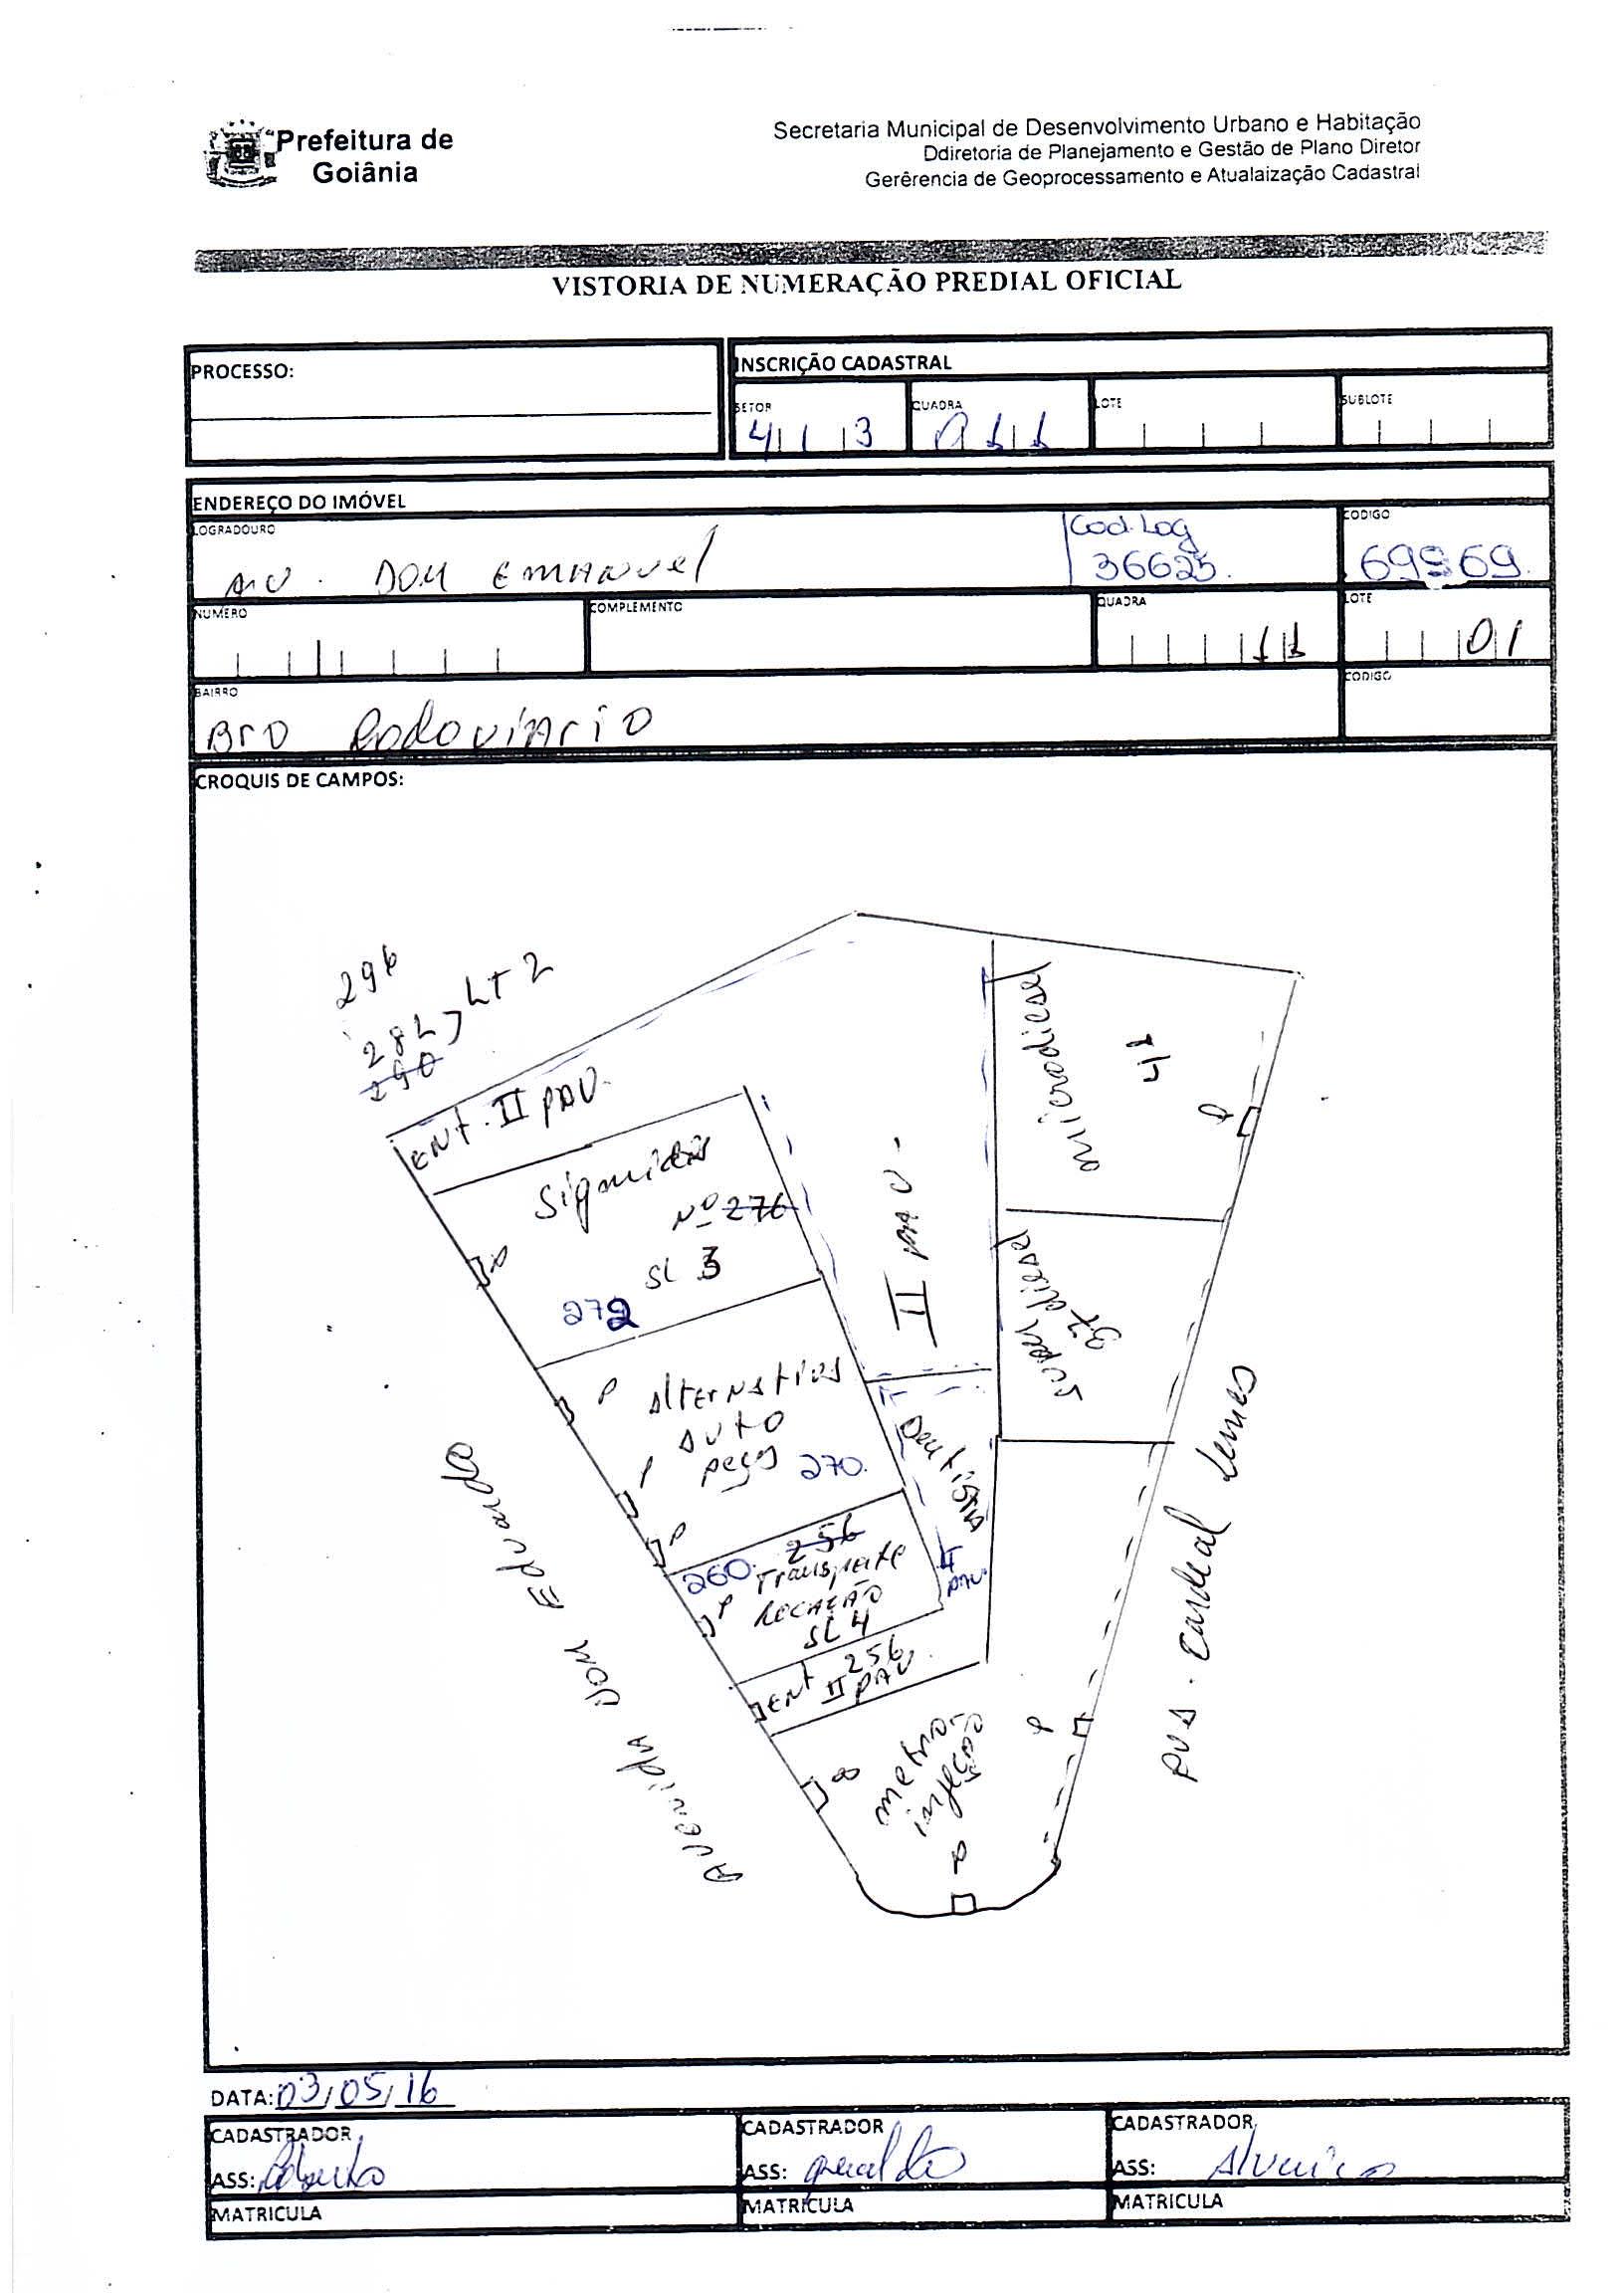 Prefeitura de
Goiânia
Secretaria Municipal de Desenvolvimento Urbano e Habitação
Ddiretoria de Planejamento e Gestão de Plano Diretor
Gerêrencia de Geoprocessamento e Atualaização Cadastral
VISTORIA DE NUMERAÇÃO PREDIAL OFICIAL
PROCESSO:
INSCRIÇÃO CADASTRAL
SETOR QUADRA LOTE SUBLOTE
4 1 3 0 1 1
ENDEREÇO DO IMÓVEL
LOGRADOURO Cod. Log CODIGO
AV. DOM EMANUEL 36625. 69969.
NUMERO COMPLEMENTO QUADRA LOTE
11 01
BAIRRO CODIGO
BrO Rodoviário
CROQUIS DE CAMPOS:
296
282 > LT 2
290
ENT. II PAV.
Nº 276
SL 3
272
II PAV.
microdiesel
41
P
super diesel
37
P Alternativas
AUTO
peças 270.
P
P
Dentista
II PAV.
260. 256
P Transporte
LOCAÇÃO
SL 4
ENT 256
II PAV.
P
P
Avenida Dom Eduardo
AVD. Cardeal Lemes
DATA: 03/05/16
CADASTRADOR CADASTRADOR CADASTRADOR
ASS: Roberto ASS: Geraldo ASS:
MATRICULA MATRÍCULA MATRICULA